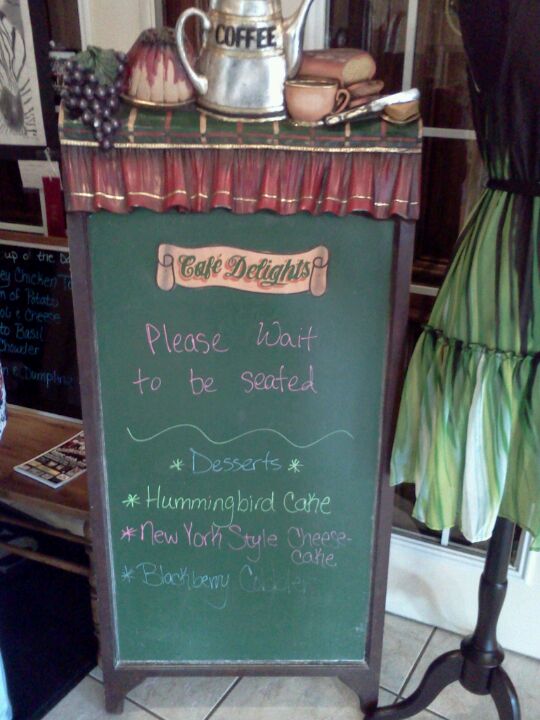 COFFEE
Café Delights
Please Wait
to be seated
* Desserts *
* Hummingbird Cake
* New York Style Cheese-
cake
* Blackberry Cobbler
up o' the Da
ey Chicken To
m of Potato
& Cheese
to Basil
Chowder
Dumplin